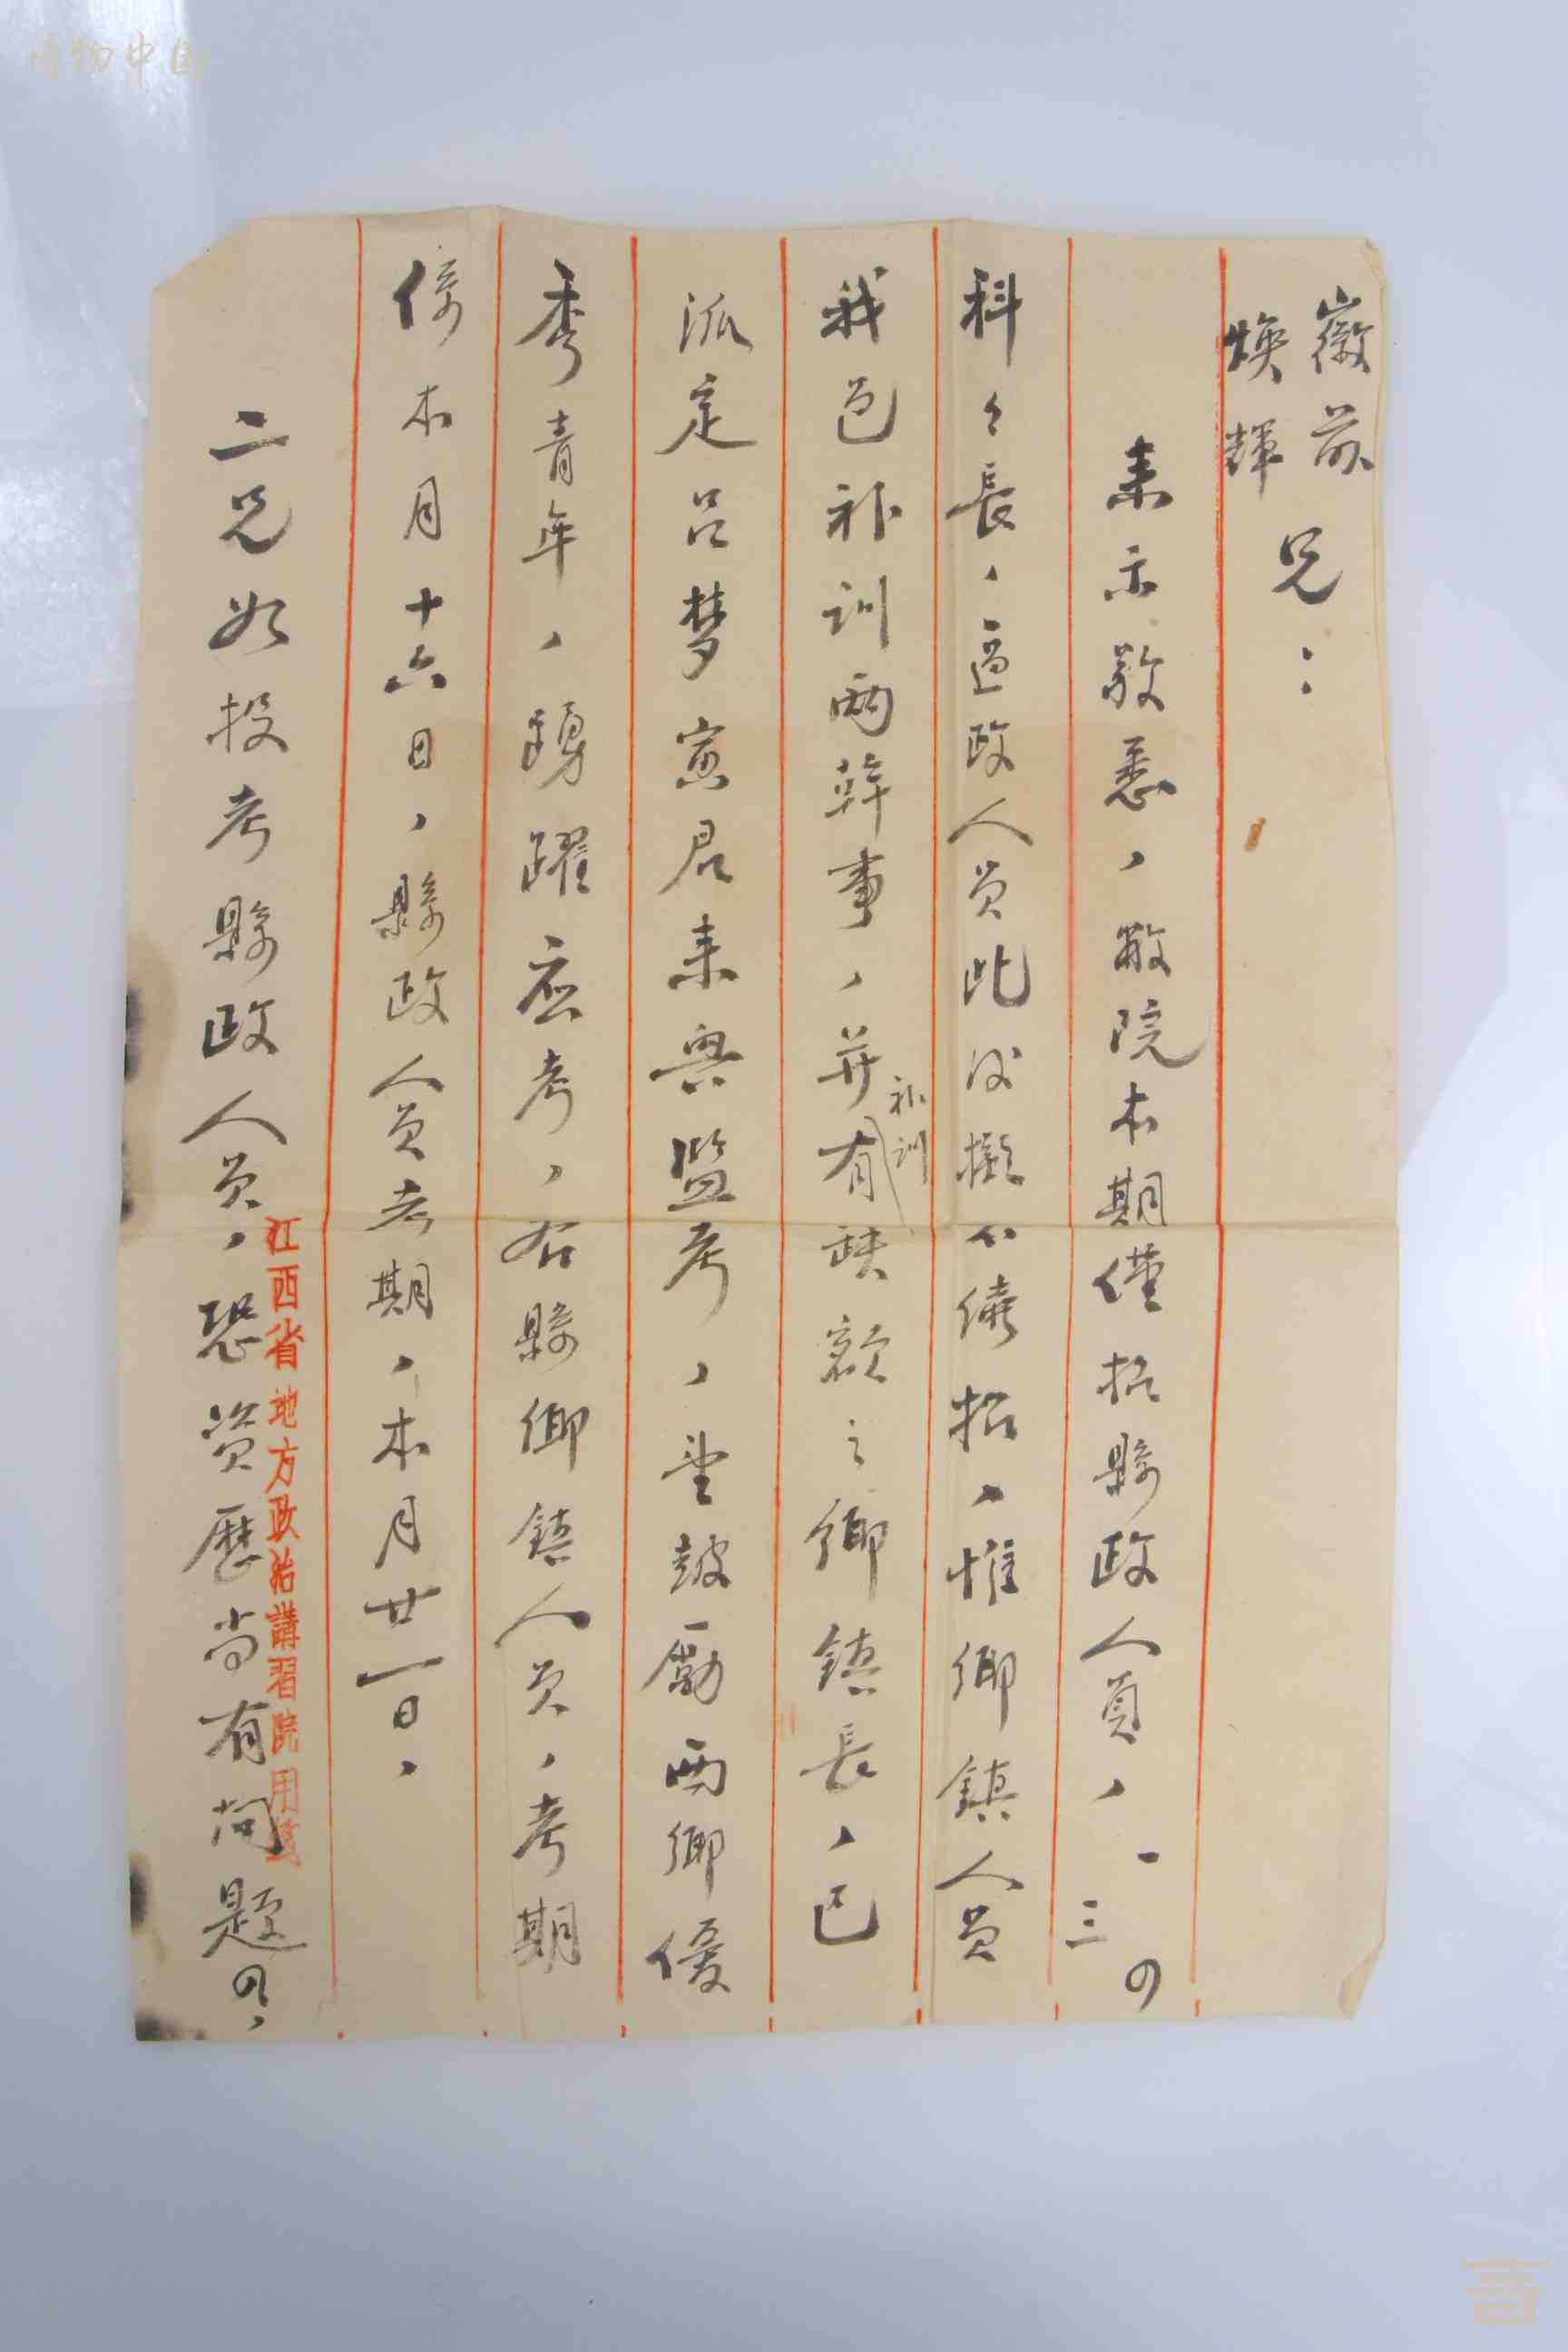 徽前
煥輝 兄：
来示敬悉，敝院本期僅招縣政人員，一三の
科々長，過政人员此後擬不續招，惟鄉鎮人员
我邑補训兩幹事，並有補训缺額之鄉鎮長，已
派定呂梦寅君来與監考，望鼓勵两鄉優
秀青年，踴躍应考，右縣鄉鎮人员，考期
係本月十六日，縣政人員考期，本月廿一日，
二兄如投考縣政人员，恐資歷尚有问题の，
江西省地方政治講習院用箋
博物中国